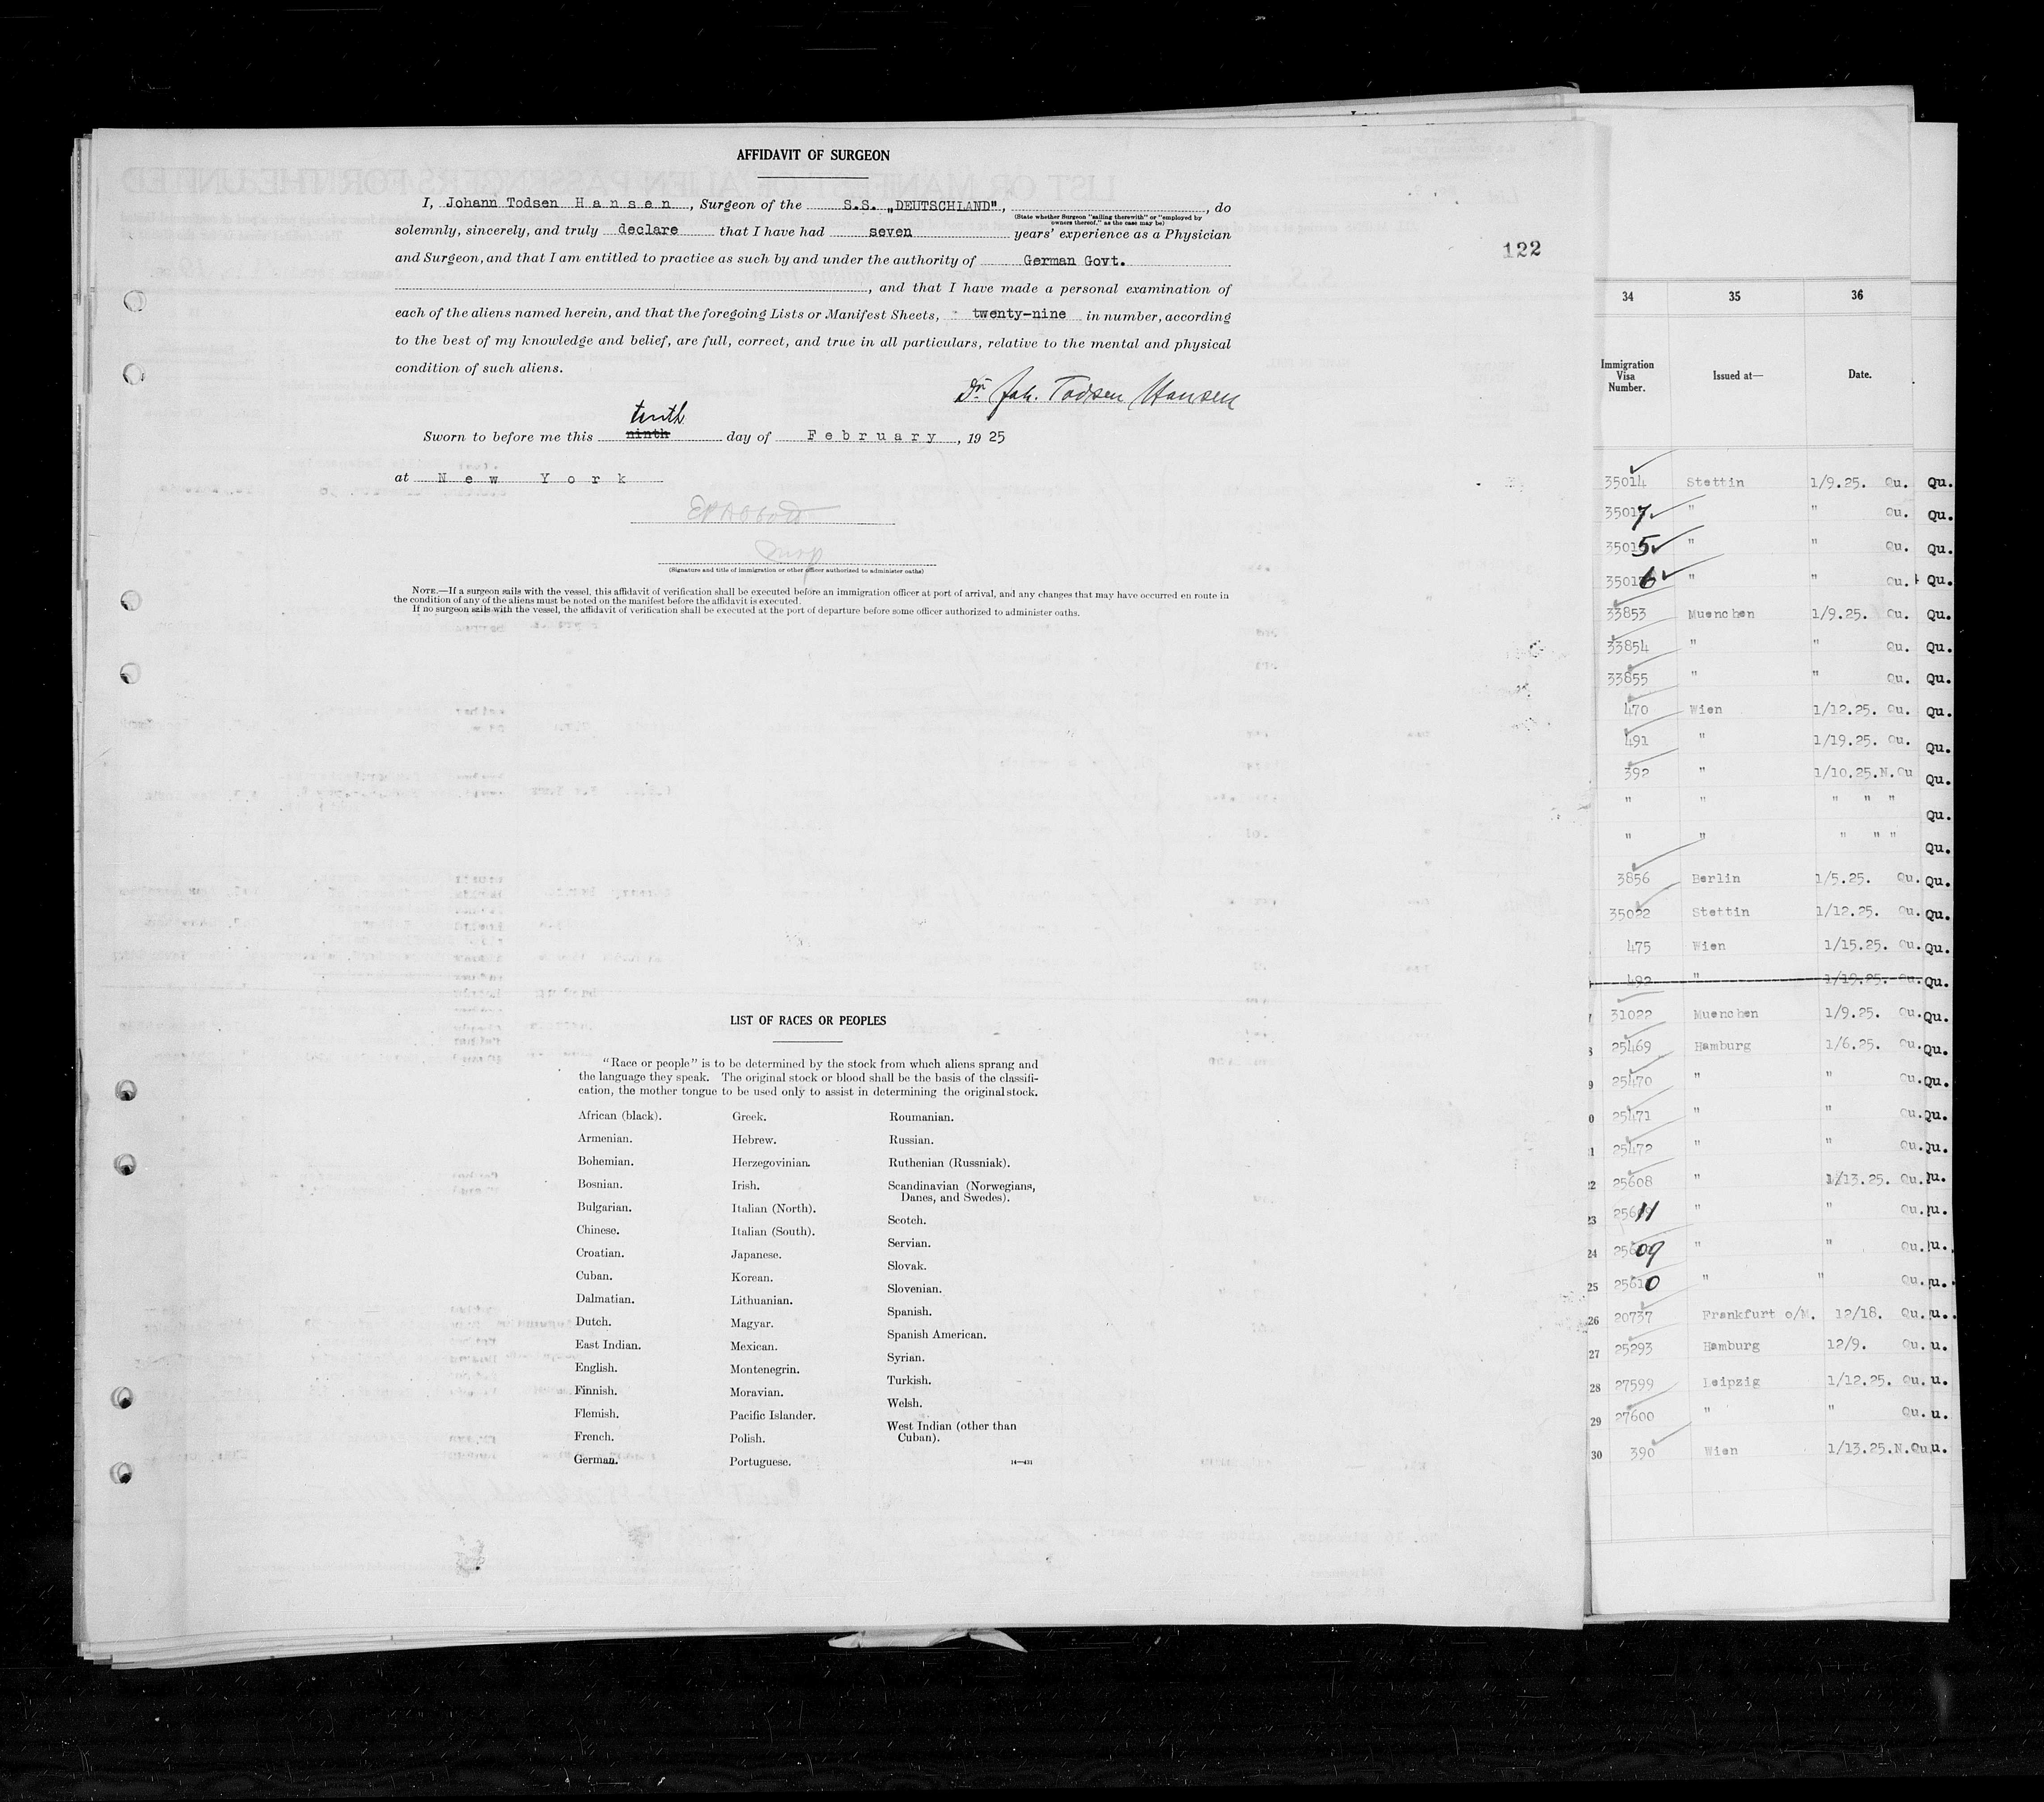 AFFIDAVIT OF SURGEON
I, Johann Todsen H a n s e n , Surgeon of the S.S. „DEUTSCHLAND", , do
(State whether Surgeon "sailing therewith" or "employed by
owners thereof," as the case may be)
solemnly, sincerely, and truly declare that I have had seven years' experience as a Physician
and Surgeon, and that I am entitled to practice as such by and under the authority of German Govt.
, and that I have made a personal examination of
each of the aliens named herein, and that the foregoing Lists or Manifest Sheets, twenty-nine in number, according
to the best of my knowledge and belief, are full, correct, and true in all particulars, relative to the mental and physical
condition of such aliens.
Dr. Joh. Todsen Hansen
tenth
Sworn to before me this ninth day of F e b r u a r y , 19 25
at N e w Y o r k
Insp
(Signature and title of immigration or other officer authorized to administer oaths)
NOTE.—If a surgeon sails with the vessel, this affidavit of verification shall be executed before an immigration officer at port of arrival, and any changes that may have occurred en route in
the condition of any of the aliens must be noted on the manifest before the affidavit is executed.
If no surgeon sails with the vessel, the affidavit of verification shall be executed at the port of departure before some officer authorized to administer oaths.
122
LIST OF RACES OR PEOPLES
"Race or people" is to be determined by the stock from which aliens sprang and
the language they speak. The original stock or blood shall be the basis of the classifi-
cation, the mother tongue to be used only to assist in determining the original stock.
African (black).
Armenian.
Bohemian.
Bosnian.
Bulgarian.
Chinese.
Croatian.
Cuban.
Dalmatian.
Dutch.
East Indian.
English.
Finnish.
Flemish.
French.
German.
Greek.
Hebrew.
Herzegovinian.
Irish.
Italian (North).
Italian (South).
Japanese.
Korean.
Lithuanian.
Magyar.
Mexican.
Montenegrin.
Moravian.
Pacific Islander.
Polish.
Portuguese.
Roumanian.
Russian.
Ruthenian (Russniak).
Scandinavian (Norwegians,
Danes, and Swedes).
Scotch.
Servian.
Slovak.
Slovenian.
Spanish.
Spanish American.
Syrian.
Turkish.
Welsh.
West Indian (other than
Cuban).
14—431
34 35 36
Immigration
Visa
Number.
Issued at—
Date.
35014 Stettin 1/9.25. Qu. Qu.
35017 " " Qu. Qu.
35015 " " Qu. Qu.
35016 " " Qu. Qu.
33853 Muenchen 1/9.25. Qu. Qu.
33854 " " Qu. Qu.
33855 " " Qu. Qu.
470 Wien 1/12.25. Qu. Qu.
491 " 1/19.25. Qu. Qu.
392 " 1/10.25.N.Qu Qu.
" " " " " Qu.
" " " " " Qu.
3856 Berlin 1/5.25. Qu. Qu.
35022 Stettin 1/12.25. Qu. Qu.
475 Wien 1/15.25. Qu. Qu.
492 " 1/19.25. Qu. Qu.
31022 Muenchen 1/9.25. Qu. Qu.
25469 Hamburg 1/6.25. Qu. Qu.
25470 " " Qu. Qu.
25471 " " Qu. Qu.
25472 " " Qu. Qu.
22 25608 " 1/13.25. Qu. u.
23 25611 " " Qu. u.
24 25609 " " Qu. u.
25 25610 " " Qu. u.
26 20737 Frankfurt o/M. 12/18. Qu. u.
27 25293 Hamburg 12/9. Qu. u.
28 27599 Leipzig 1/12.25. Qu. u.
29 27600 " " Qu. u.
30 390 Wien 1/13.25.N.Qu u.